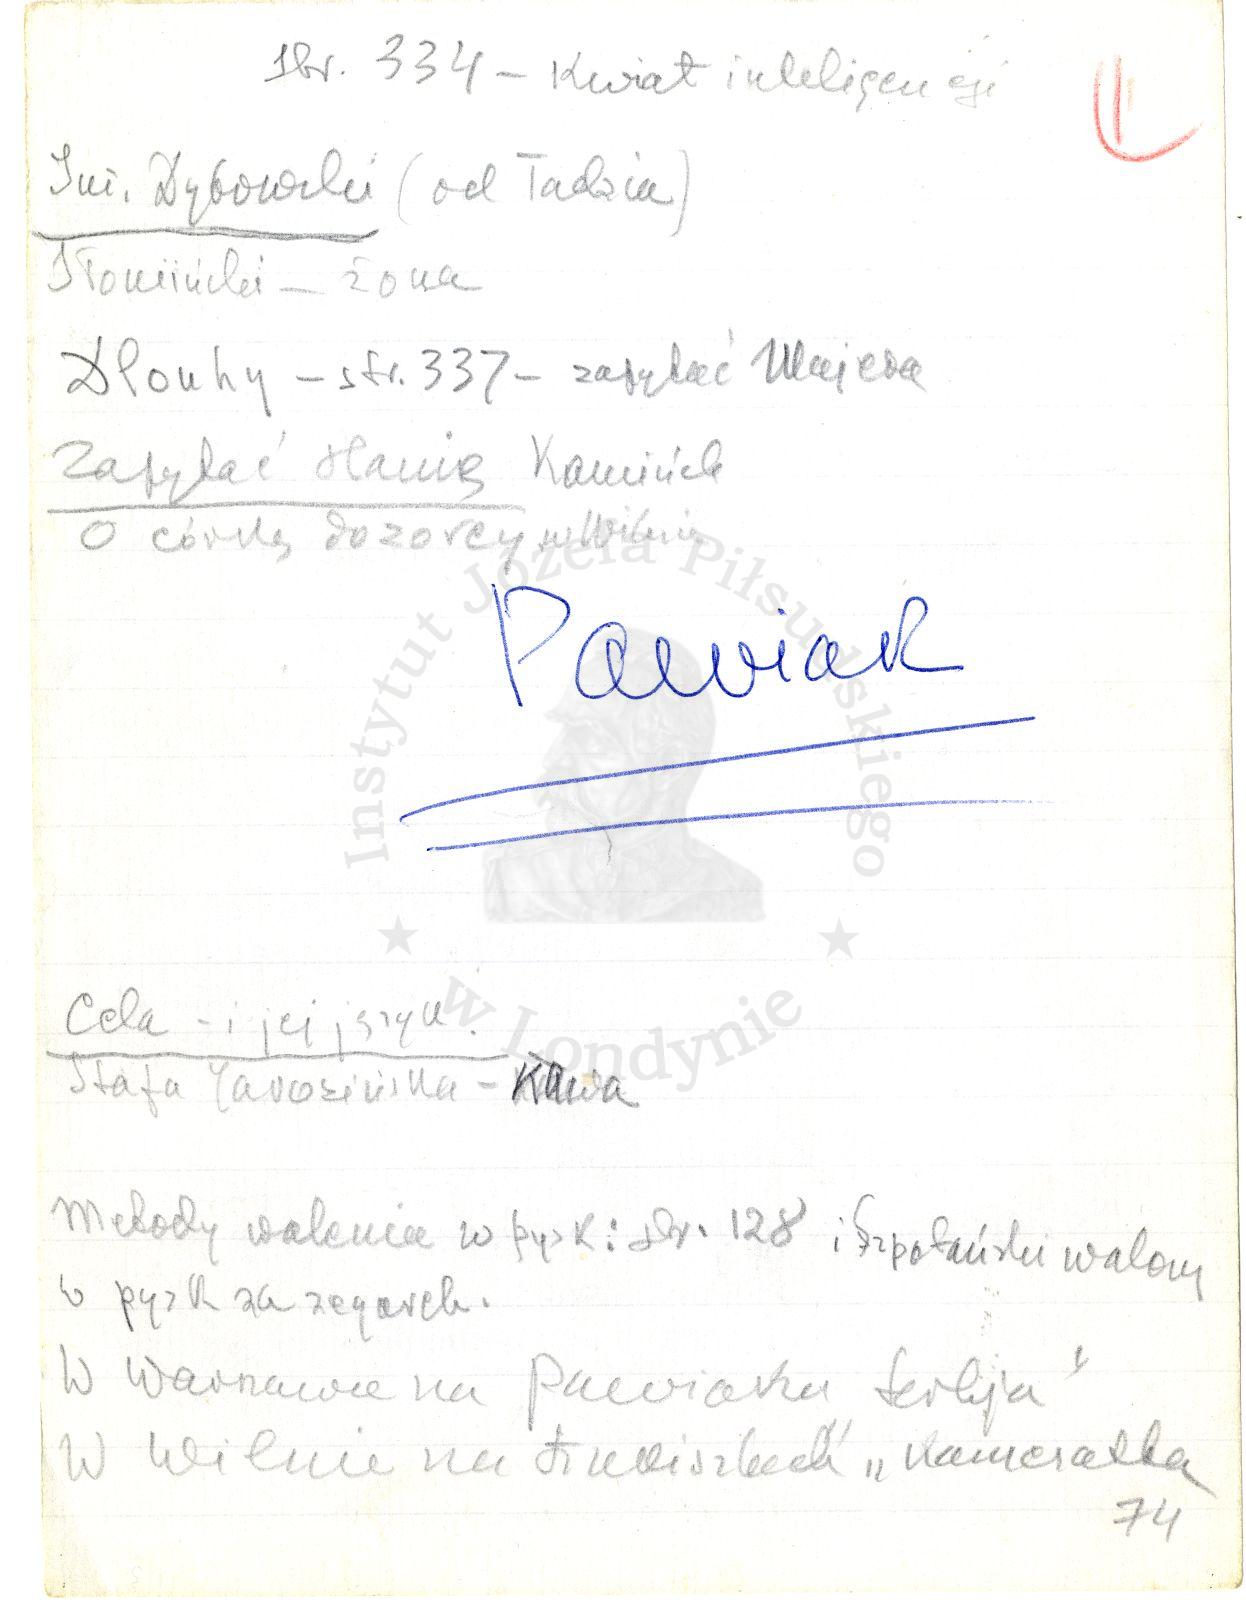 Str. 334 – Kwiat inteligencji
Inż. Dybowski (od Tadzia)
Słomiński – żona
Dlouhy – str. 337 – zapytać Majera
Zapytać Hanię Kamińską
O córkę dozorcy w Wilnie
Pawiak
Instytut Józefa Piłsudskiego
w Londynie
Cela – i jej język.
Stefa Jarosińska – Kawa
Metody walenia w pysk: str. 128 i Szpotański walony
w pysk za zegarek.
W Warszawie na Pawiaku Serbja"
W Wilnie na Łukiszkach „Kamerałka
74